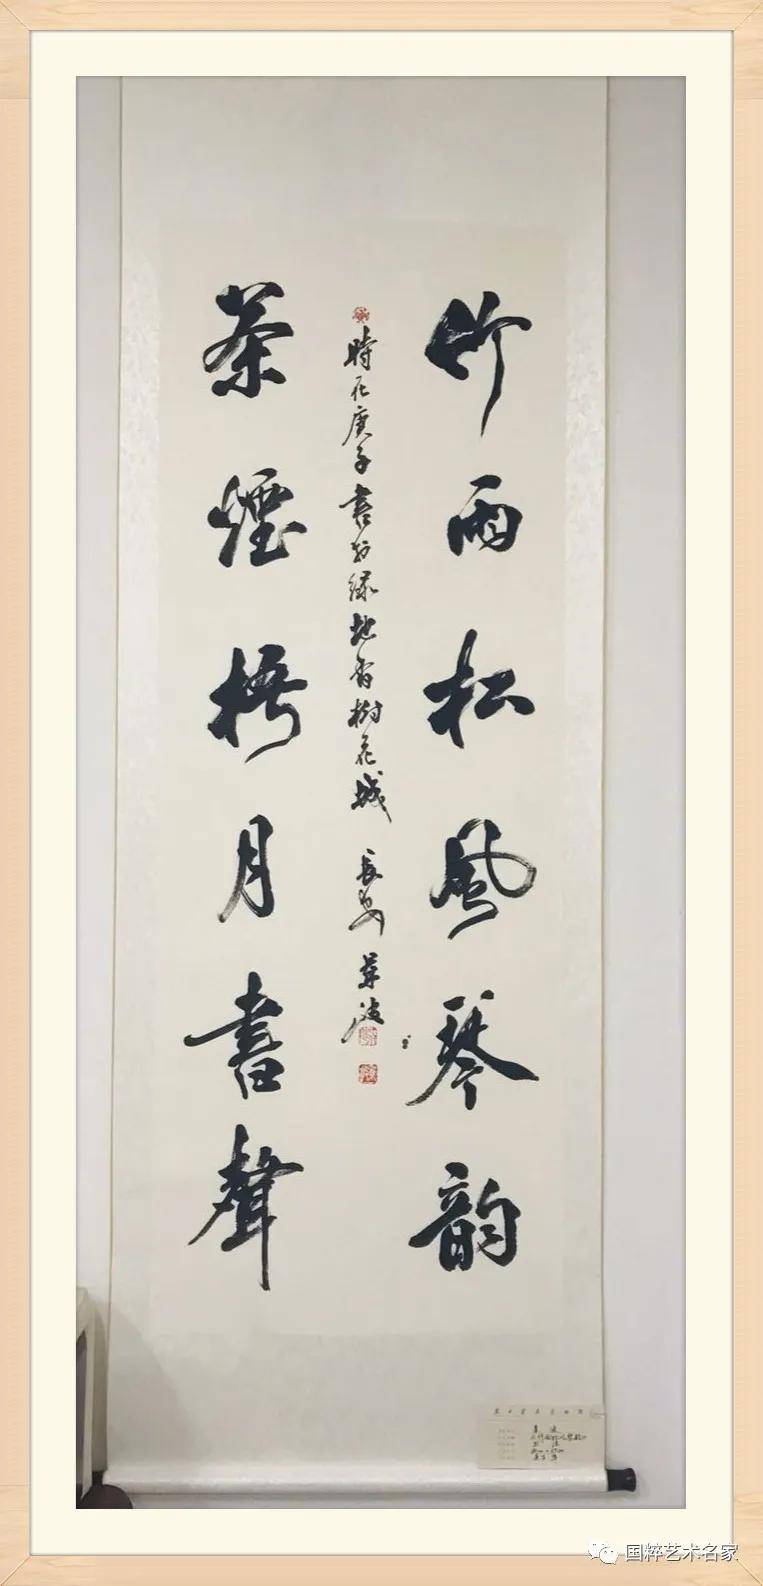 竹雨松風琴韵
時在庚子書於绿地香樹花城 長安
茶煙梧月書聲
国粹艺术名家